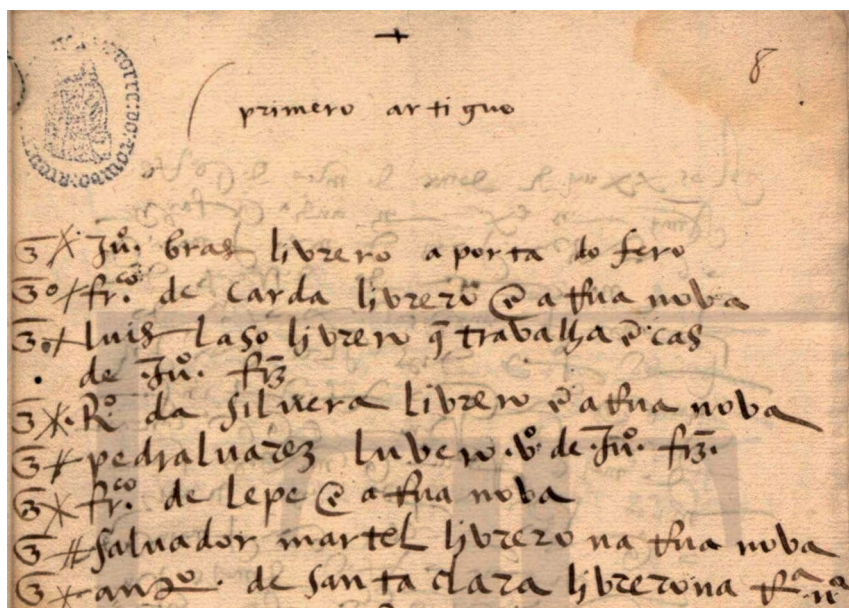 8
primero artiguo
Juº. bras livrero a porta do fero
frco. de carda livrero ẽ a Rua nova
luis laso livrero q̃ travalha ẽ cas
de Juº. frz̃
Rº. da silvera livrero ẽ a Rua nova
pedraluarez luvero vº. de Juº. frz̃.
frco. de lepe ẽ a Rua nova
salvador martel livrero na Rua nova
antº. de santa clara livrero na Rª nª